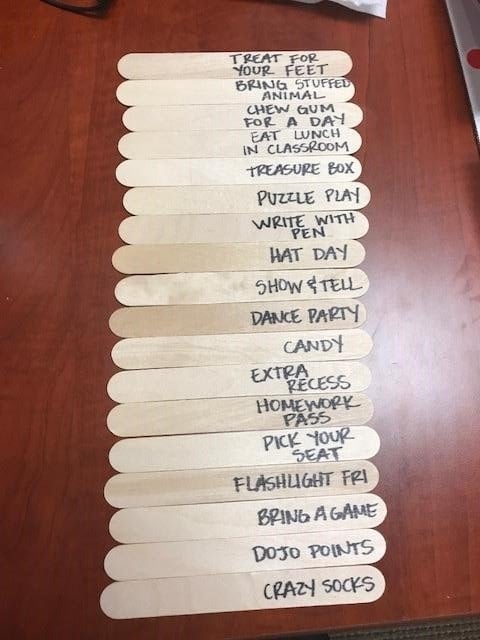 TREAT FOR
YOUR FEET
BRING STUFFED
ANIMAL
CHEW GUM
FOR A DAY
EAT LUNCH
IN CLASSROOM
TREASURE BOX
PUZZLE PLAY
WRITE WITH
PEN
HAT DAY
SHOW & TELL
DANCE PARTY
CANDY
EXTRA
RECESS
HOMEWORK
PASS
PICK YOUR
SEAT
FLASHLIGHT FRI
BRING A GAME
DOJO POINTS
CRAZY SOCKS